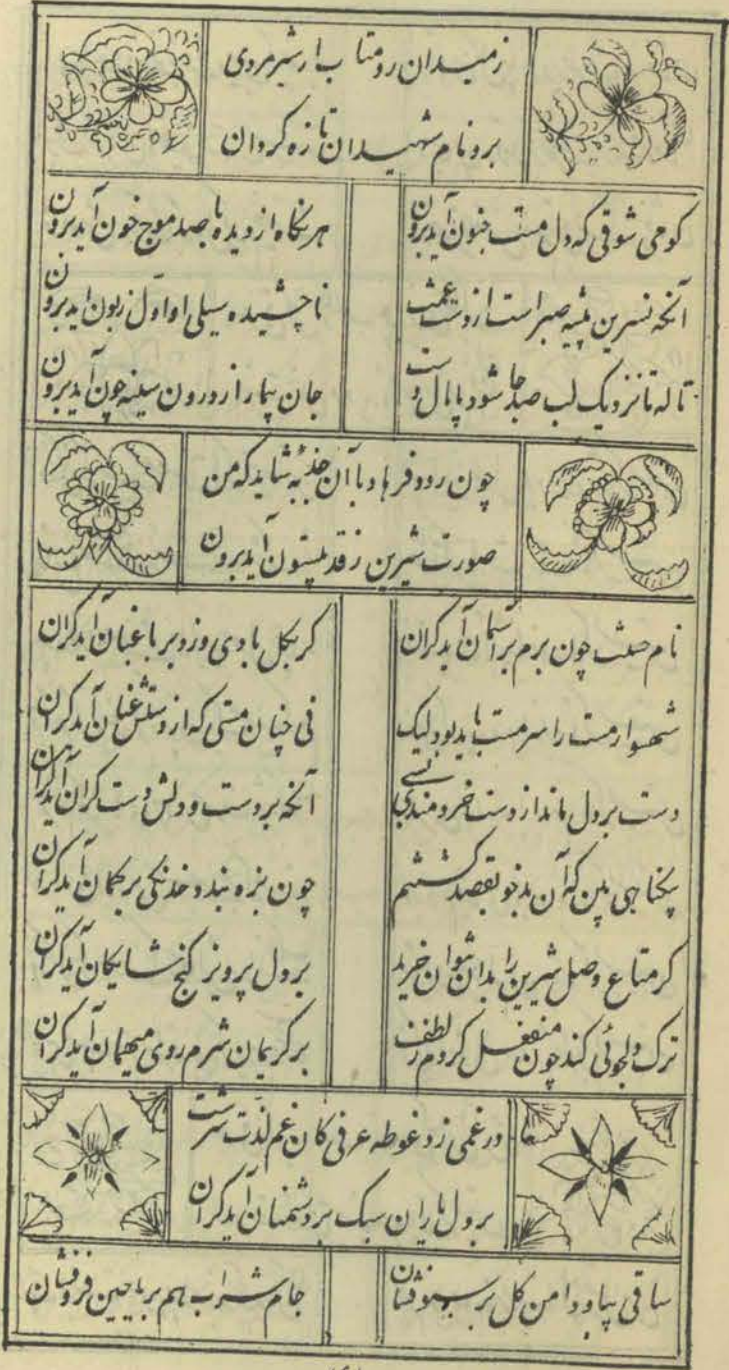 زمیدان رو متاب ار شیرمردی
برو نام شهیدان تازه کردان
کو می شوقی که دل مست جنون آید برون
هر نگاه از دیده با صد موج خون آید برون
آنکه نسرین پنبه صبر است از دست غمت
ناچشیده سیلی او اول زبون آید برون
ناله تا نزدیک لب صد جا شود پامال دست
جان بیمار از درون سینه چون آید برون
چون رود فرهاد با آن جذبه شاید که من
صورت شیرین ز قد بیستون آید برون
نام حسنت چون برم بر آسمان آید کران
کر بکل بادی وزد بر باغبان آید کران
شهسوار مست را سرمست باید بود لیک
نی چنان مستی که از دستش عنان آید کران
دست بر دل ماند از دست خردمندی بسی
آنکه بر دست و دلش دست کران آید کران
بیکناهی بین که آن بدخو بقصد کشتنم
چون بزه بندد خدنکی بر کمان آید کران
کر متاع وصل شیرین را بدان نتوان خرید
بر دل پرویز کنج شایکان آید کران
ترک دلجوئی کند چون منفعل کردم ز لطف
بر کریمان شرم روی میهمان آید کران
در غمی زد غوطه عرفی کان غم لذت سرشت
بر دل یاران سبک بر دشمنان آید کران
ساقی بیا و دامن کل بر سبو فشان
جام شراب هم بریاحین فرو فشان